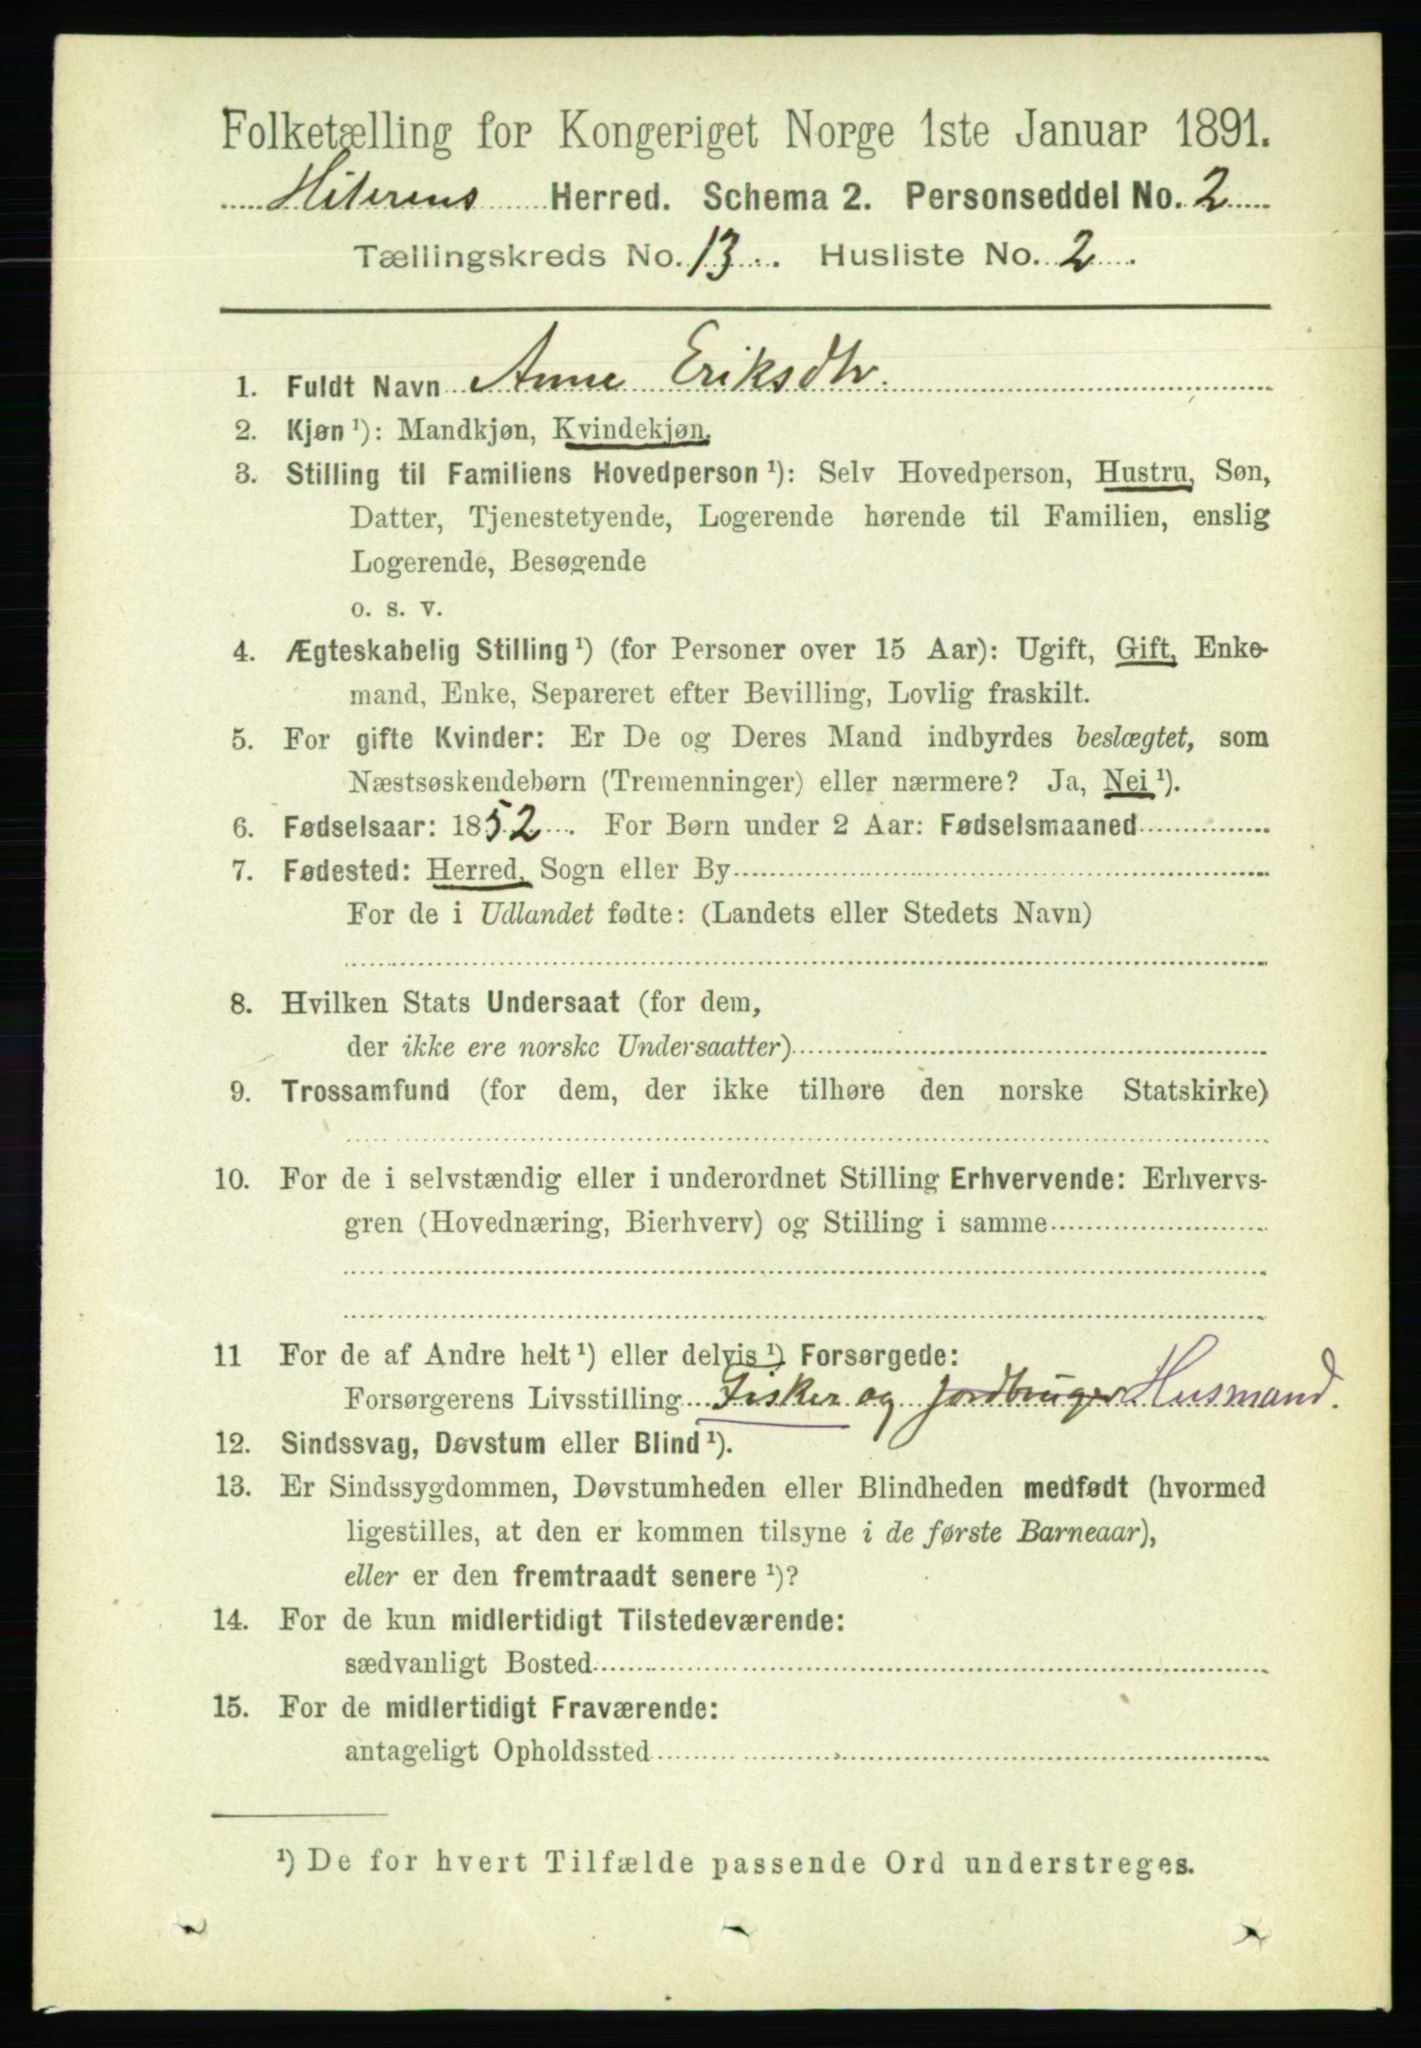 Folketælling for Kongeriget Norge 1ste Januar 1891.
Hiterens Herred. Schema 2. Personseddel No. 2
Tællingskreds No. 13. Husliste No. 2
1. Fuldt Navn Anne Eriksdtr.
2. Kjøn ¹): Mandkjøn, Kvindekjøn.
3. Stilling til Familiens Hovedperson ¹): Selv Hovedperson, Hustru, Søn,
Datter, Tjenestetyende, Logerende hørende til Familien, enslig
Logerende, Besøgende
o. s. v.
4. Ægteskabelig Stilling ¹) (for Personer over 15 Aar): Ugift, Gift, Enke-
mand, Enke, Separeret efter Bevilling, Lovlig fraskilt.
5. For gifte Kvinder: Er De og Deres Mand indbyrdes beslægtet, som
Næstsøskendebørn (Tremenninger) eller nærmere? Ja, Nei ¹).
6. Fødselsaar: 1852. For Børn under 2 Aar: Fødselsmaaned
7. Fødested: Herred, Sogn eller By
For de i Udlandet fødte: (Landets eller Stedets Navn)
8. Hvilken Stats Undersaat (for dem,
der ikke ere norske Undersaatter)
9. Trossamfund (for dem, der ikke tilhøre den norske Statskirke)
10. For de i selvstændig eller i underordnet Stilling Erhvervende: Erhvervs-
gren (Hovednæring, Bierhverv) og Stilling i samme
11 For de af Andre helt ¹) eller delvis ¹) Forsørgede:
Forsørgerens Livsstilling Fisker og Jordbruger Husmand.
12. Sindssvag, Døvstum eller Blind ¹).
13. Er Sindssygdommen, Døvstumheden eller Blindheden medfødt (hvormed
ligestilles, at den er kommen tilsyne i de første Barneaar),
eller er den fremtraadt senere ¹)?
14. For de kun midlertidigt Tilstedeværende:
sædvanligt Bosted
15. For de midlertidigt Fraværende:
antageligt Opholdssted
¹) De for hvert Tilfælde passende Ord understreges.